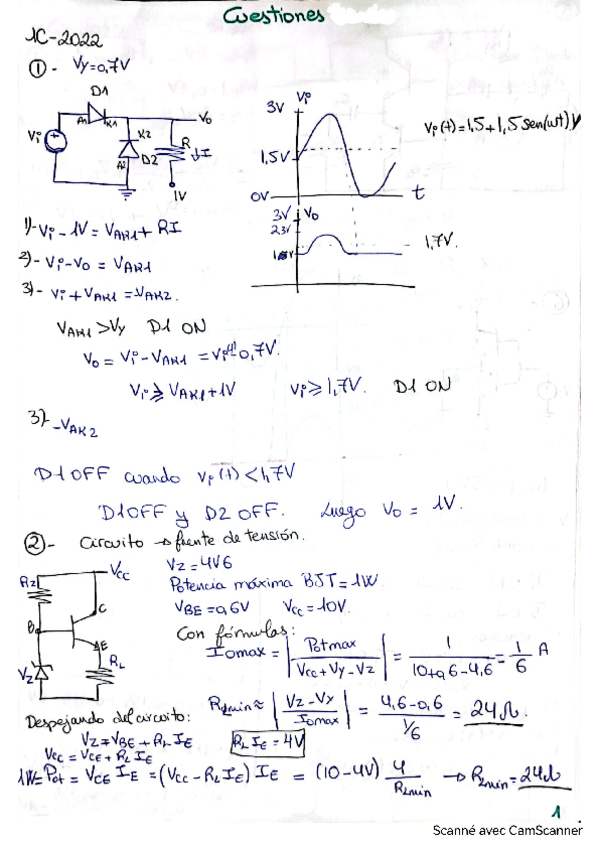 Cuestiones
1C-2022
①- Vγ=0,7V
D1
A1 K1
Vo
Vi
K2
A2 D2
R
↓I
1V
Vi
3V
1,5V
0V
t
Vi(t)=1,5+1,5sen(wt)V
3V Vo
2,3V
1,7V.
1)- Vi - 1V = VAK1 + RI
2)- Vi - Vo = VAK1
3)- Vi + VAK1 = VAK2.
VAK1 > Vγ D1 ON
Vo = Vi - VAK1 = Vi(t) - 0,7V.
Vi ≥ VAK1 + 1V Vi ≥ 1,7V. D1 ON
3)- -VAK2
D1 OFF cuando Vi(t) < 1,7V
D1 OFF y D2 OFF. Luego Vo = 1V.
②- Circuito → fuente de tensión.
Rz
Vcc
C
B
E
Vz
RL
Vz = 4V6
Potencia máxima BJT = 1W
VBE = 0,6V Vcc = 10V.
Con fórmulas:
Iomax = |Potmax / (Vcc + Vγ - Vz)| = 1 / (10+0,6-4,6) = 1/6 A
RLmin ≈ |(Vz - Vγ) / Iomax| = (4,6-0,6) / (1/6) = 24Ω.
Despejando del circuito:
Vz = VBE + RL IE RL IE = 4V
Vcc = VCE + RL IE
1W = Pot = VCE IE = (Vcc - RL IE) IE = (10-4V) 4/RLmin → RLmin = 24Ω
1
Scanné avec CamScanner